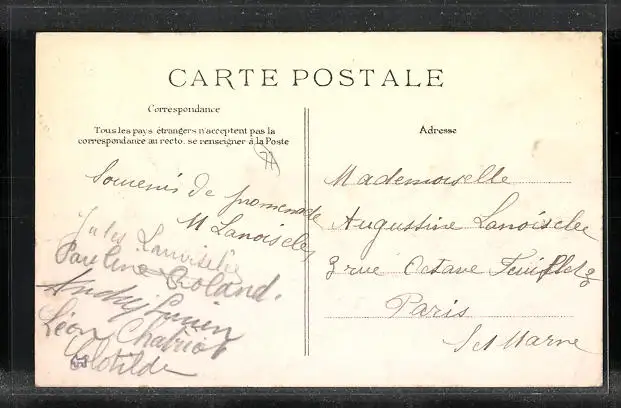 CARTE POSTALE
Correspondance
Tous les pays étrangers n'acceptent pas la
correspondance au recto. se renseigner à la Poste
Souvenir de promenade
M Lanoiselee
Jules Lanoiselee
Pauline Roland.
Léon Chabriot
Clotilde
Adresse
Mademoiselle
Augustine Lanoiselee
3 rue Octave Feuillet
Paris